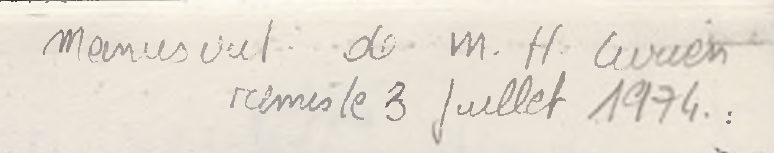 Manuscrit de M. H. Curien
remis le 3 Juillet 1974.